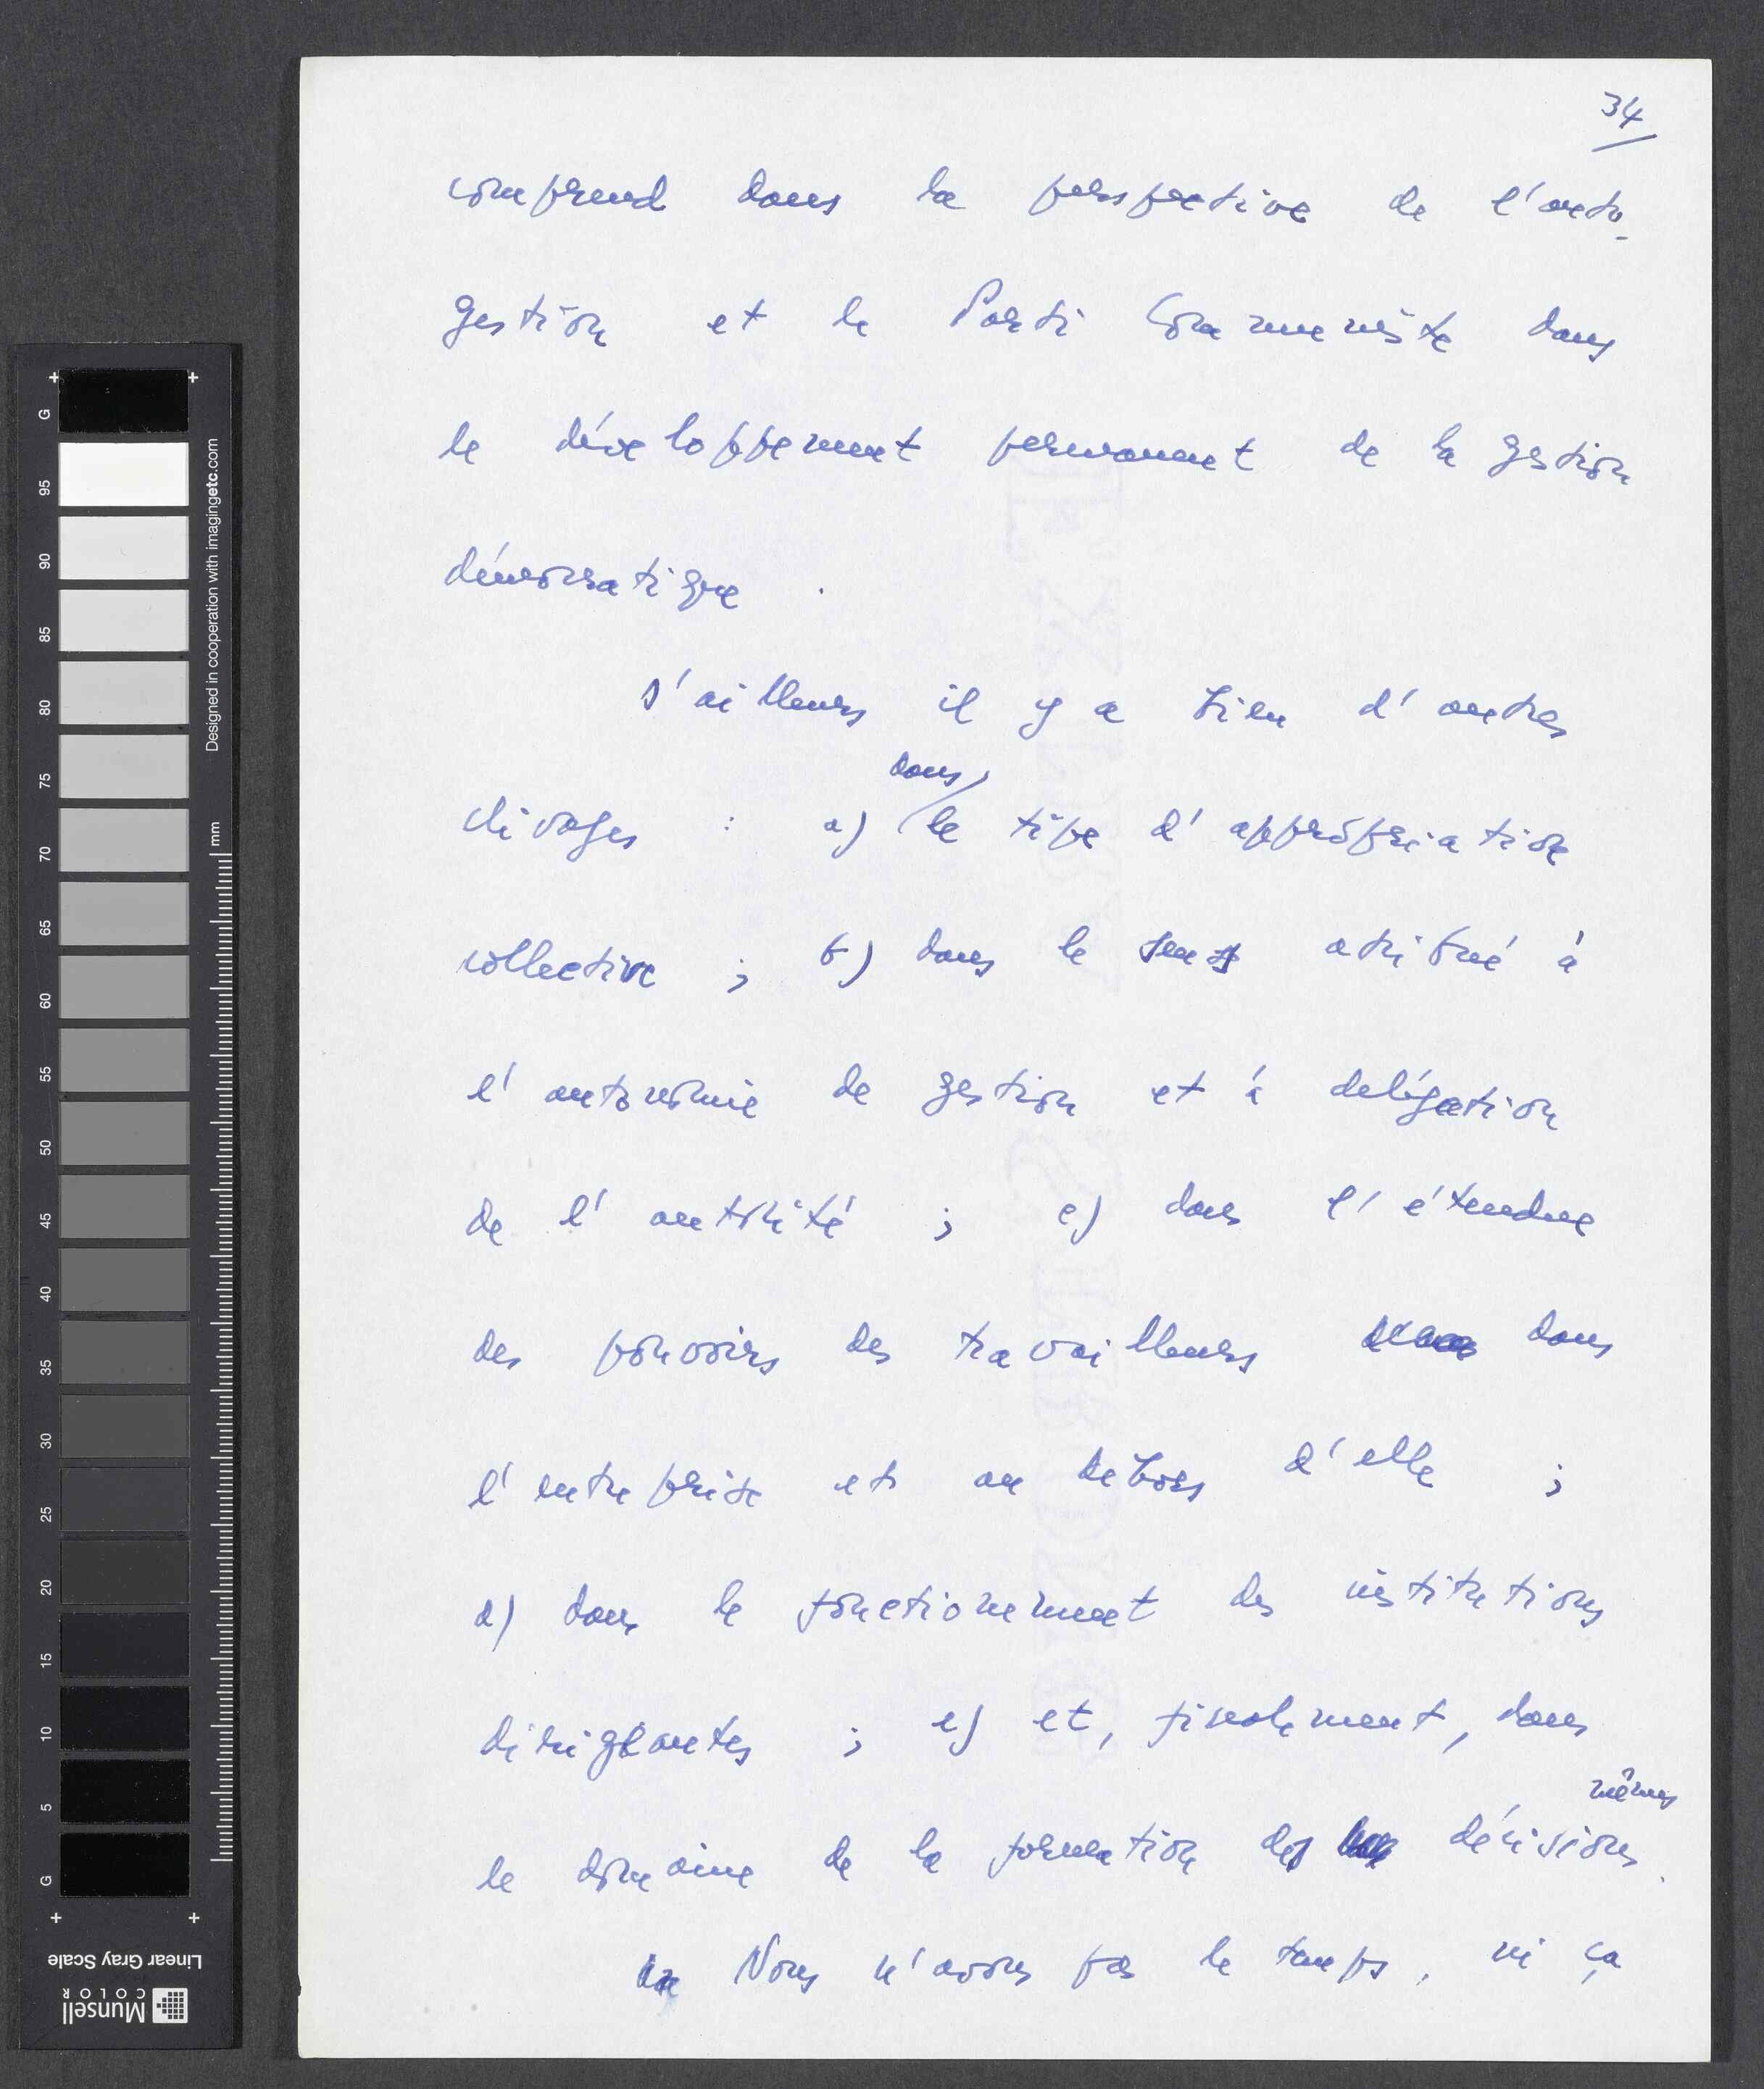 34
comprend dans la perspective de l'auto-
gestion et le Parti Communiste dans
le développement permanent de la gestion
démocratique .
D'ailleurs il y a bien d'autres
clivages : a) dans le tipe d'appropriation
collective ; b) dans le sens atribué à
l'autonomie de gestion et à delégation
de l'autorité ; c) dans l'étendue
des pouvoirs des travailleurs dans
l'entreprise et au dehors d'elle ;
d) dans le fonctionement des institutions
dirigeantes ; e) et, finalement, dans
le domaine de la formation des mêmes décisions.
Nous n'avons pas le temps, ni ça
G 95 90 85 80 75 70 65 60 55 50 45 40 35 30 25 20 15 10 5 G
mm
Designed in cooperation with imagingetc.com
Linear Gray Scale
Munsell
COLOR